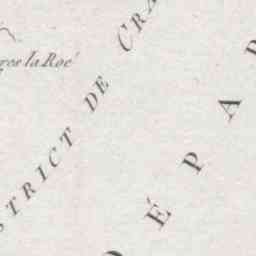 ros la Roë
STRICT DE CRA
DÉPAR